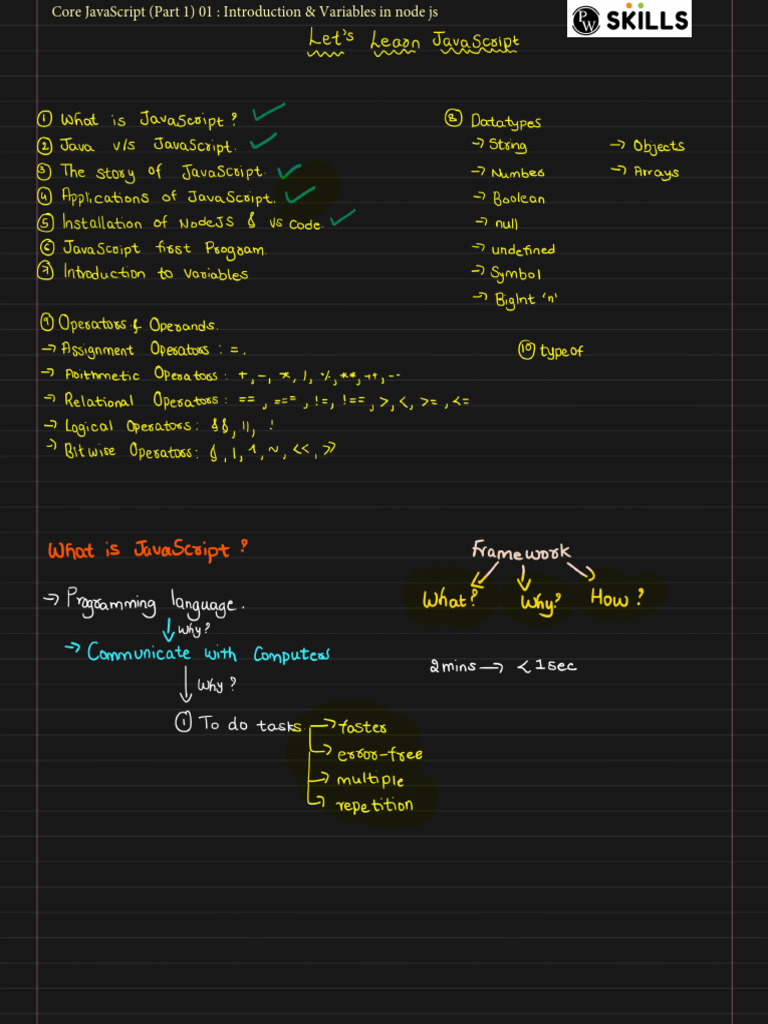 Core JavaScript (Part 1) 01 : Introduction & Variables in node js
PW SKILLS
Let's Learn JavaScript
① What is JavaScript?
② Java v/s JavaScript.
③ The story of JavaScript.
④ Applications of JavaScript.
⑤ Installation of NodeJS & VS Code.
⑥ JavaScript first Program.
⑦ Introduction to variables
⑧ Datatypes
→ String
→ Number
→ Boolean
→ null
→ undefined
→ Symbol
→ BigInt 'n'
→ Objects
→ Arrays
⑨ Operators & Operands.
→ Assignment Operators : =.
→ Arithmetic Operators : +, -, *, /, %, **, ++, --
→ Relational Operators : ==, ===, !=, !==, >, <, >=, <=
→ Logical Operators : &&, ||, !
→ Bitwise Operators : &, |, ^, ~, <<, >>
⑩ typeof
What is JavaScript?
→ Programming language.
↓ Why?
→ Communicate with Computers
↓ Why?
① To do tasks
→ faster
→ error-free
→ multiple
→ repetition
Framework
What? Why? How?
2 mins → < 1 sec